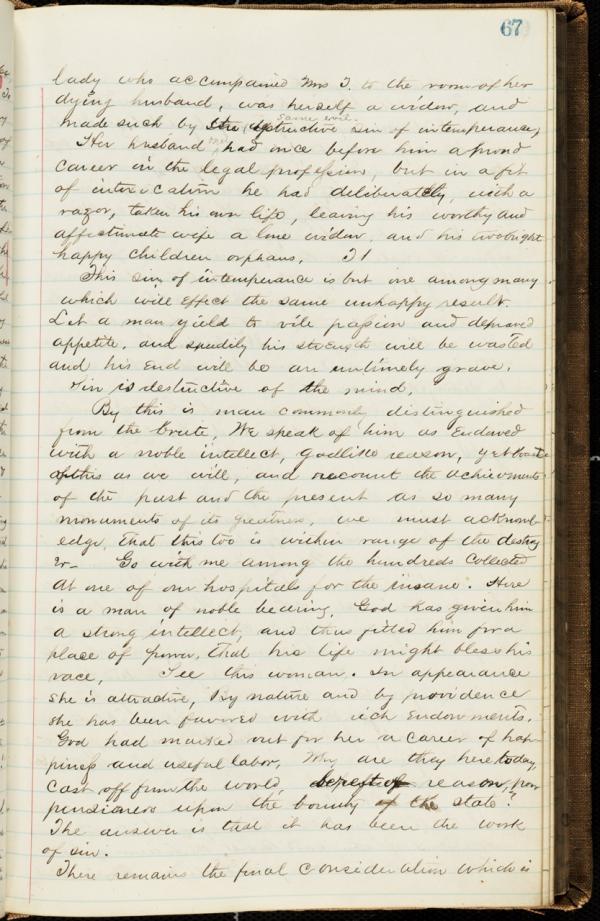 67
lady who accompained Mrs T. to the room of her
dying husband, was herself a widow, and
same evil.
made such by the destructive sin of intemperance,
Her husband, had once before him a proud
career in the legal profession, but in a fit
of intoxication he had deliberately, with a
razor, taken his own life, leaving his worthy and
affectionate wife a lone widow, and his two bright
happy children orphans.
This sin of intemperance is but one among many
which will effect the same unhappy result.
Let a man yield to vile passion and depraved
appetite, and speedily his strength will be wasted
and his End will be an untimely grave.
Sin is destructive of the mind.
By this is man commonly distinguished
from the brute, We speak of him as Endowed
with a noble intellect, godlike reason, yet boast
of this as we will, and recount the achievements
of the past and the present as so many
monuments of its greatness, we must acknowl-
edge, that this too is within range of the destroy
er- Go with me among the hundreds collected
at one of our hospitals for the insane. Here
is a man of noble bearing, God has given him
a strong intellect, and thus fitted him for a
place of power, that his life might bless his
race, See this woman. In appearance
she is attractive, By nature and by providence
she has been favored with rich Endowments.
God had marked out for her a career of hap-
piness and useful labor, Why are they here today,
cast off from the world, bereft of reason, poor
pensioners upon the bounty of the state?
The answer is that it has been the work
of sin.
There remains the final consideration which is